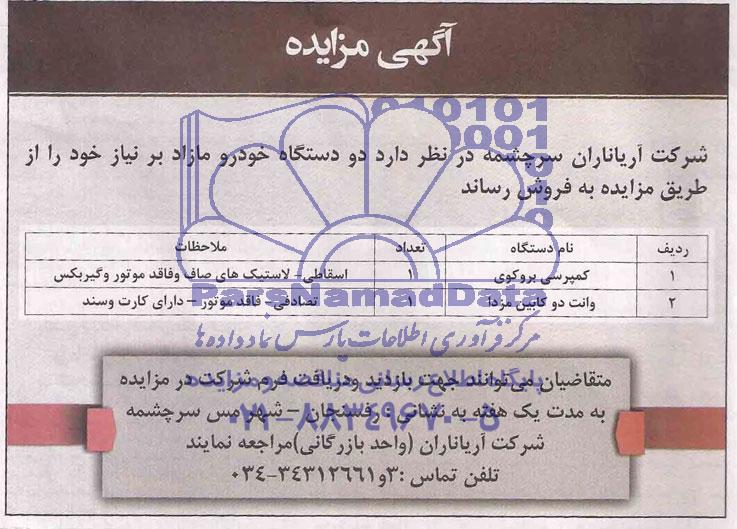 آگهی مزایده
شرکت آریاناران سرچشمه در نظر دارد دو دستگاه خودرو مازاد بر نیاز خود را از
طریق مزایده به فروش رساند
ردیف نام دستگاه تعداد ملاحظات
۱ کمپرسی بروکوی ۱ اسقاطی- لاستیک های صاف وفاقد موتور وگیربکس
۲ وانت دو کابین مزدا ۱ تصادفی- فاقد موتور – دارای کارت وسند
ParsNamadData
مرکز فرآوری اطلاعات پارس نماد داده ها
متقاضیان می توانند جهت بازدید ودریافت فرم شرکت در مزایده
به مدت یک هفته به نشانی : رفسنجان – شهر مس سرچشمه
۰۲۱-۸۸۳۴۹۶۷۰-۵
شرکت آریاناران (واحد بازرگانی)مراجعه نمایند
تلفن تماس :۳و۳۴۳۱۲۶۶۱-۰۳۴